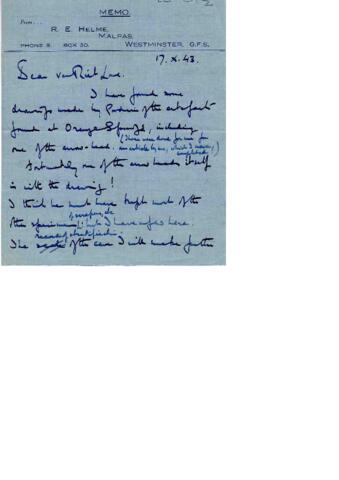 MEMO.
From...
R. E. HELME,
MALPAS,
PHONE 8. BOX 30. WESTMINSTER, O.F.S.
17.X.43.
Dear van Riet Lowe.
I have found some
drawings made by of the artefacts
found at Orange Springs, including
one of the arrow-head. (These were done for me for
an article by me, which I never
completed.)
Fortunately one of the arrow heads itself
is with the drawing!
I think he must have kept most of the
other specimens (scrapers, etc.) but I have a few here.
The of the cave I will make further